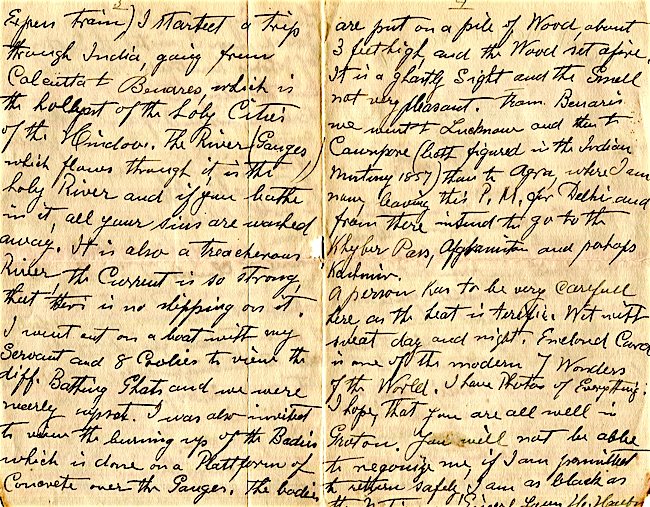 Expres train) I started a trip
through India, going from
Calcutta to Benares, which is
the hollyest of the holy Cities
of the Hindoo. The River (Ganges)
which flows through it is the
holy River and if you bathe
in it, all your sins are washed
away. It is also a treacherous
River, the Current is so strong,
that there is no slipping on it.
I went out on a boat with my
Servant and 8 Coolies to view the
diff. Bathing Ghats and we were
nearly upset. I was also invited
to view the burning up of the Bodies
which is done on a Plattform of
Concrete over the Ganges. The bodies
are put on a pile of Wood, about
3 feet high, and the Wood set afire.
It is a ghastly Sight and the Smell
not very pleasant. From Benares
we went to Lucknow and then to
Cawnpore (both figured in the Indian
Mutiny 1857) then to Agra, where I am
now, leaving this P.M. for Delhi and
from there intend to go to the
Khyber Pass, Afghanistan and perhaps
Kashmir.
A person has to be very carefull
here as the heat is terific. Wet with
sweat day and night. Enclosed Card
is one of the modern 7 Wonders
of the World. I have Photos of Everything.
I hope, that you are all well in
Groton. You will not be able
to regonize me, if I am permitted
to return safely, I am as black as
the